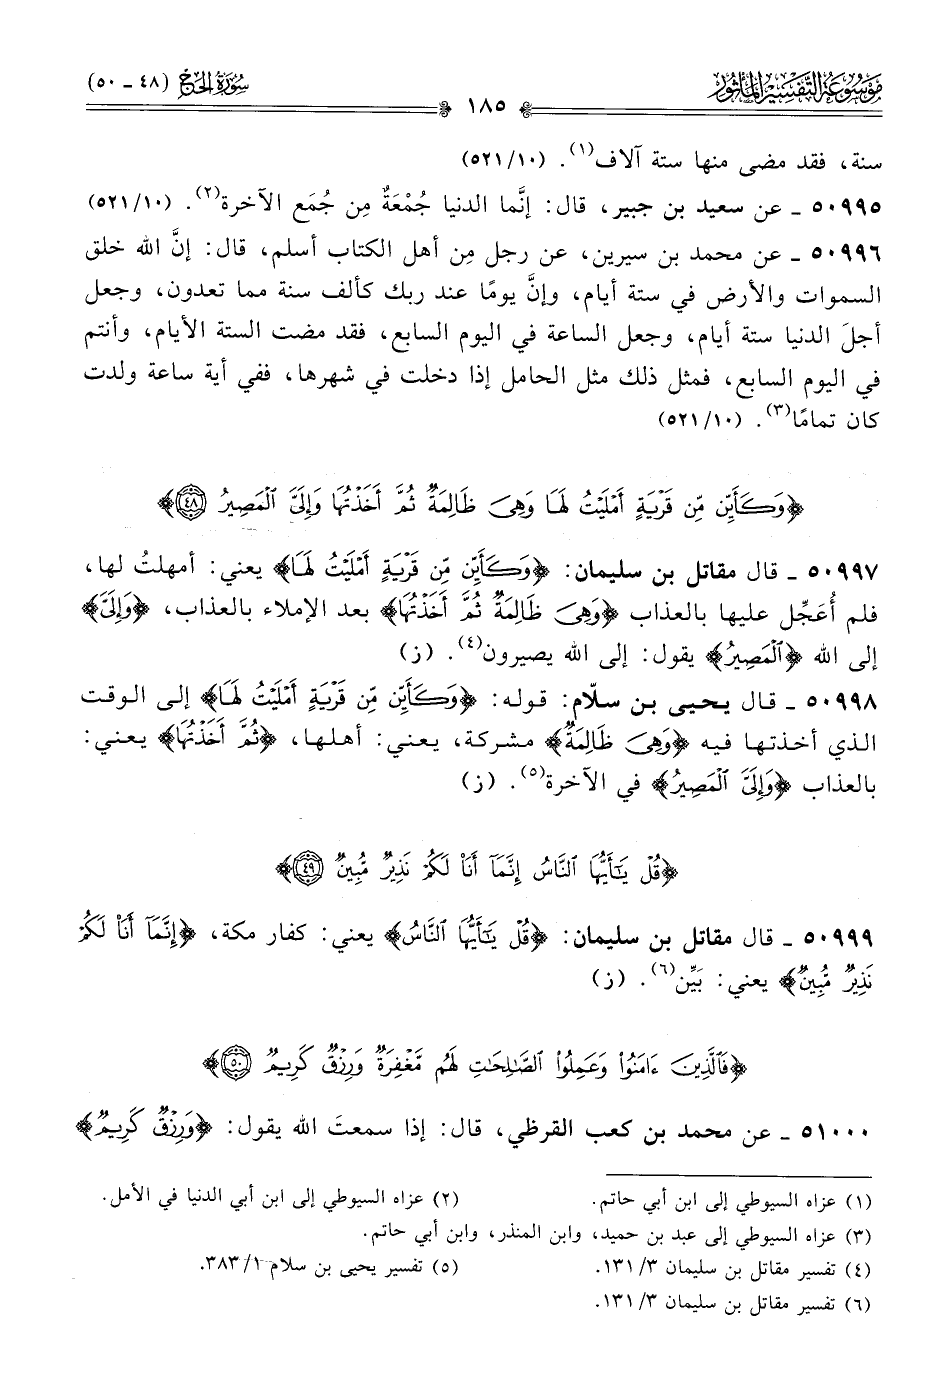 مَوْسُوعَة التَّفْسِيرِ المَأْثُور
سُورَةُ الحَجّ (٤٨ - ٥٠)
١٨٥
سنة، فقد مضى منها ستة آلاف(١). (٥٢١/١٠)
٥٠٩٩٥ ـ عن سعيد بن جبير، قال: إنَّما الدنيا جُمْعَةٌ مِن جُمَع الآخرة(٢). (٥٢١/١٠)
٥٠٩٩٦ ـ عن محمد بن سيرين، عن رجل مِن أهل الكتاب أسلم، قال: إنَّ الله خلق
السموات والأرض في ستة أيام، وإنَّ يومًا عند ربك كألف سنة مما تعدون، وجعل
أجلَ الدنيا ستة أيام، وجعل الساعة في اليوم السابع، فقد مضت الستة الأيام، وأنتم
في اليوم السابع، فمثل ذلك مثل الحامل إذا دخلت في شهرها، ففي أية ساعة ولدت
كان تمامًا(٣). (٥٢١/١٠)
﴿وَكَأَيِّن مِّن قَرْيَةٍ أَمْلَيْتُ لَهَا وَهِىَ ظَالِمَةٌ ثُمَّ أَخَذْتُهَا وَإِلَىَّ ٱلْمَصِيرُ ٤٨﴾
٥٠٩٩٧ ـ قال مقاتل بن سليمان: ﴿وَكَأَيِّن مِّن قَرْيَةٍ أَمْلَيْتُ لَهَا﴾ يعني: أمهلتُ لها،
فلم أُعَجِّل عليها بالعذاب ﴿وَهِىَ ظَالِمَةٌ ثُمَّ أَخَذْتُهَا﴾ بعد الإملاء بالعذاب، ﴿وَإِلَىَّ﴾
إلى الله ﴿ٱلْمَصِيرُ﴾ يقول: إلى الله يصيرون(٤). (ز)
٥٠٩٩٨ ـ قال يحيى بن سلّام: قوله: ﴿وَكَأَيِّن مِّن قَرْيَةٍ أَمْلَيْتُ لَهَا﴾ إلى الوقت
الذي أخذتها فيه ﴿وَهِىَ ظَالِمَةٌ﴾ مشركة، يعني: أهلها، ﴿ثُمَّ أَخَذْتُهَا﴾ يعني:
بالعذاب ﴿وَإِلَىَّ ٱلْمَصِيرُ﴾ في الآخرة(٥). (ز)
﴿قُلْ يَٰٓأَيُّهَا ٱلنَّاسُ إِنَّمَآ أَنَا۠ لَكُمْ نَذِيرٌ مُّبِينٌ ٤٩﴾
٥٠٩٩٩ ـ قال مقاتل بن سليمان: ﴿قُلْ يَٰٓأَيُّهَا ٱلنَّاسُ﴾ يعني: كفار مكة، ﴿إِنَّمَآ أَنَا۠ لَكُمْ
نَذِيرٌ مُّبِينٌ﴾ يعني: بَيِّن(٦). (ز)
﴿فَٱلَّذِينَ ءَامَنُوا۟ وَعَمِلُوا۟ ٱلصَّٰلِحَٰتِ لَهُم مَّغْفِرَةٌ وَرِزْقٌ كَرِيمٌ ٥٠﴾
٥١٠٠٠ ـ عن محمد بن كعب القرظي، قال: إذا سمعتَ الله يقول: ﴿وَرِزْقٌ كَرِيمٌ﴾
(١) عزاه السيوطي إلى ابن أبي حاتم.
(٢) عزاه السيوطي إلى ابن أبي الدنيا في الأمل.
(٣) عزاه السيوطي إلى عبد بن حميد، وابن المنذر، وابن أبي حاتم.
(٤) تفسير مقاتل بن سليمان ٣/ ١٣١.
(٥) تفسير يحيى بن سلام ١/ ٣٨٣.
(٦) تفسير مقاتل بن سليمان ٣/ ١٣١.